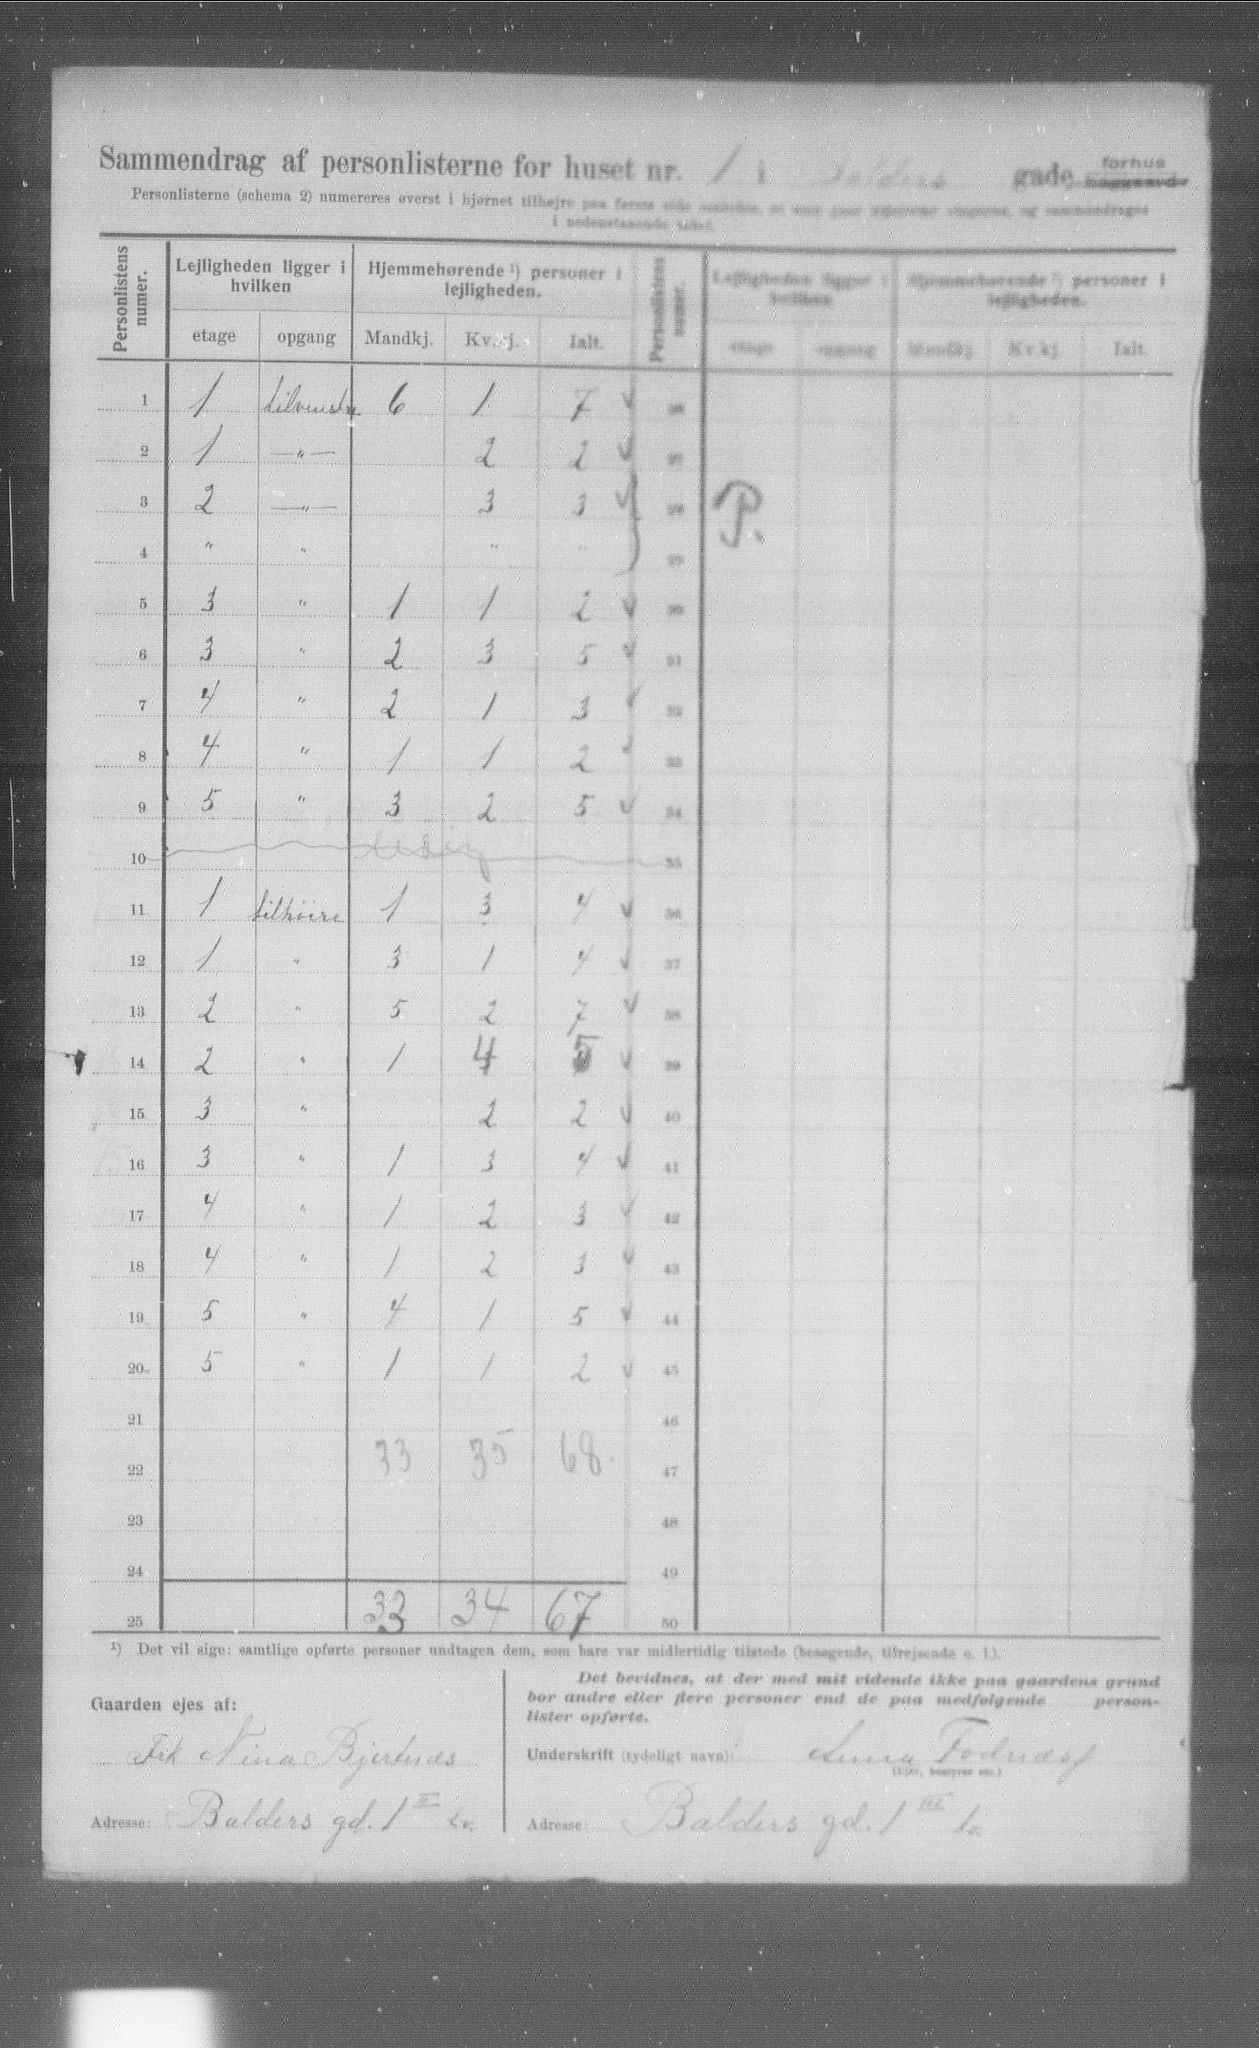 Sammendrag af personlisterne for huset nr. 1 i Balders gade forhus baggaard
Personlisterne (schema 2) numereres øverst i hjørnet tilhøjre paa første side og sammendrages
i nedenstaaende tabel.
Personlistens numer. Lejligheden ligger i hvilken Hjemmehørende ¹) personer i lejligheden. Personlistens numer. Lejligheden ligger i hvilken Hjemmehørende ¹) personer i lejligheden.
etage opgang Mandkj. Kv.kj. Ialt. etage opgang Mandkj. Kv.kj. Ialt.
1 1 tilvenstre 6 1 7 ✓ 26
2 1 —"— 2 2 ✓ 27
3 2 —"— 3 3 ✓ 28 P.
4 " " " " 29
5 3 " 1 1 2 ✓ 30
6 3 " 2 3 5 ✓ 31
7 4 " 2 1 3 ✓ 32
8 4 " 1 1 2 ✓ 33
9 5 " 3 2 5 ✓ 34
10 ledig 35
11 1 tilhöire 1 3 4 ✓ 36
12 1 " 3 1 4 ✓ 37
13 2 " 5 2 7 ✓ 38
14 2 " 1 4 5 ✓ 39
15 3 " 2 2 ✓ 40
16 3 " 1 3 4 ✓ 41
17 4 " 1 2 3 ✓ 42
18 4 " 1 2 3 ✓ 43
19 5 " 4 1 5 ✓ 44
20 5 " 1 1 2 ✓ 45
21 46
22 33 35 68. 47
23 48
24 49
25 33 34 67 50
¹) Det vil sige: samtlige opførte personer undtagen dem, som bare var midlertidig tilstede (besøgende, tilrejsende o. l.).
Gaarden ejes af:
Frk Nina Bjertnæs
Adresse: Balders gd. 1 II tv.
Det bevidnes, at der med mit vidende ikke paa gaardens grund
bor andre eller flere personer end de paa medfølgende person-
lister opførte.
Underskrift (tydeligt navn): Anna
(Ejer, bestyrer etc.)
Adresse: Balders gd. 1 III tv.